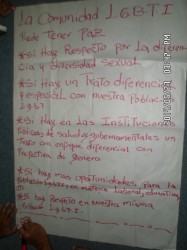 La Comunidad L.G.B.T.I
Puede Tener Paz
*Si Hay Respeto por La diferen
cia y diversidad sexual.
*Si Hay un Trato diferencial
especial con nuestra Población
L.G.B.T
*Si Hay en Las Instituciones
Publicas de salud y gubernamentales un
Trato con enfoque diferencial con
Perspectiva de genero
*Si hay mas oportunidades para la
en materia laboral, educativa
*Si hay Respeto en Nuestra misma
L.G.B.T.I.